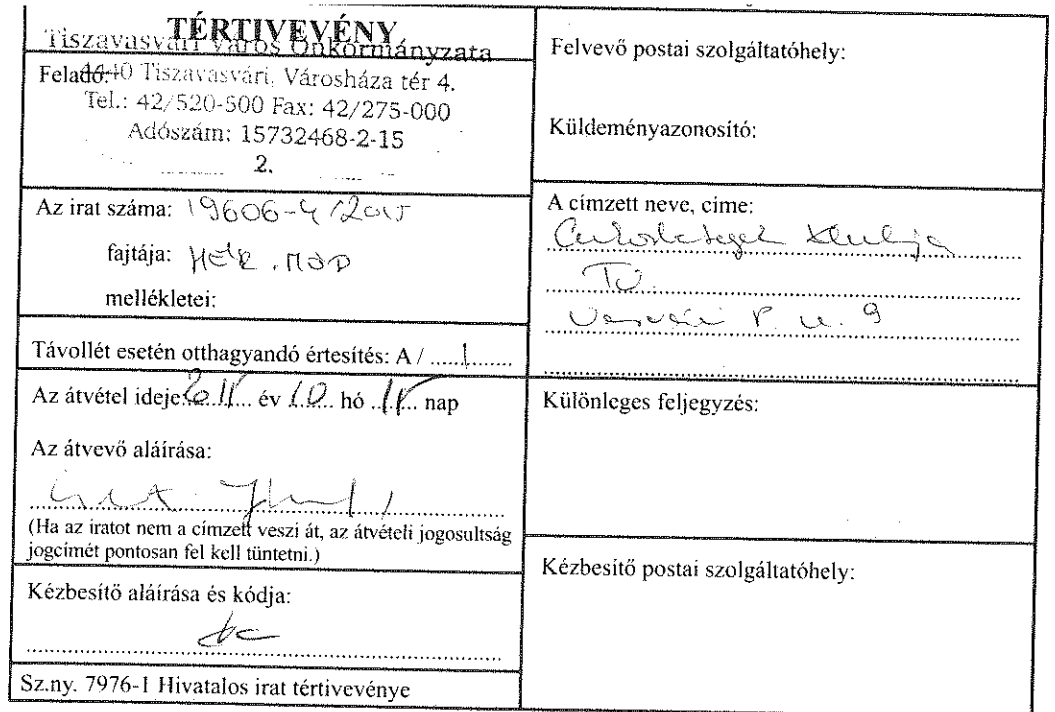 TÉRTIVEVÉNY
Tiszavasvári Város Önkormányzata
Feladó:
4440 Tiszavasvári, Városháza tér 4.
Tel.: 42/520-500 Fax: 42/275-000
Adószám: 15732468-2-15
2.
Az irat száma: 19606-4/2015
fajtája:
mellékletei:
Távollét esetén otthagyandó értesítés: A / 1
Az átvétel ideje: év 10 hó nap
Az átvevő aláírása:
(Ha az iratot nem a címzett veszi át, az átvételi jogosultság
jogcímét pontosan fel kell tüntetni.)
Kézbesítő aláírása és kódja:
Sz.ny. 7976-1 Hivatalos irat tértivevénye
Felvevő postai szolgáltatóhely:
Küldeményazonosító:
A címzett neve, címe:
Cukorbetegek Klubja
Vasvári P. u. 9
Különleges feljegyzés:
Kézbesítő postai szolgáltatóhely: